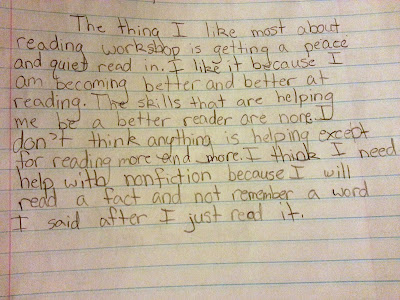 The thing I like most about
reading workshop is getting a peace
and quiet read in. I like it because I
am becoming better and better at
reading. The skills that are helping
me be a better reader are none. I
don't think anything is helping except
for reading more and more. I think I need
help with nonfiction because I will
read a fact and not remember a word
I said after I just read it.